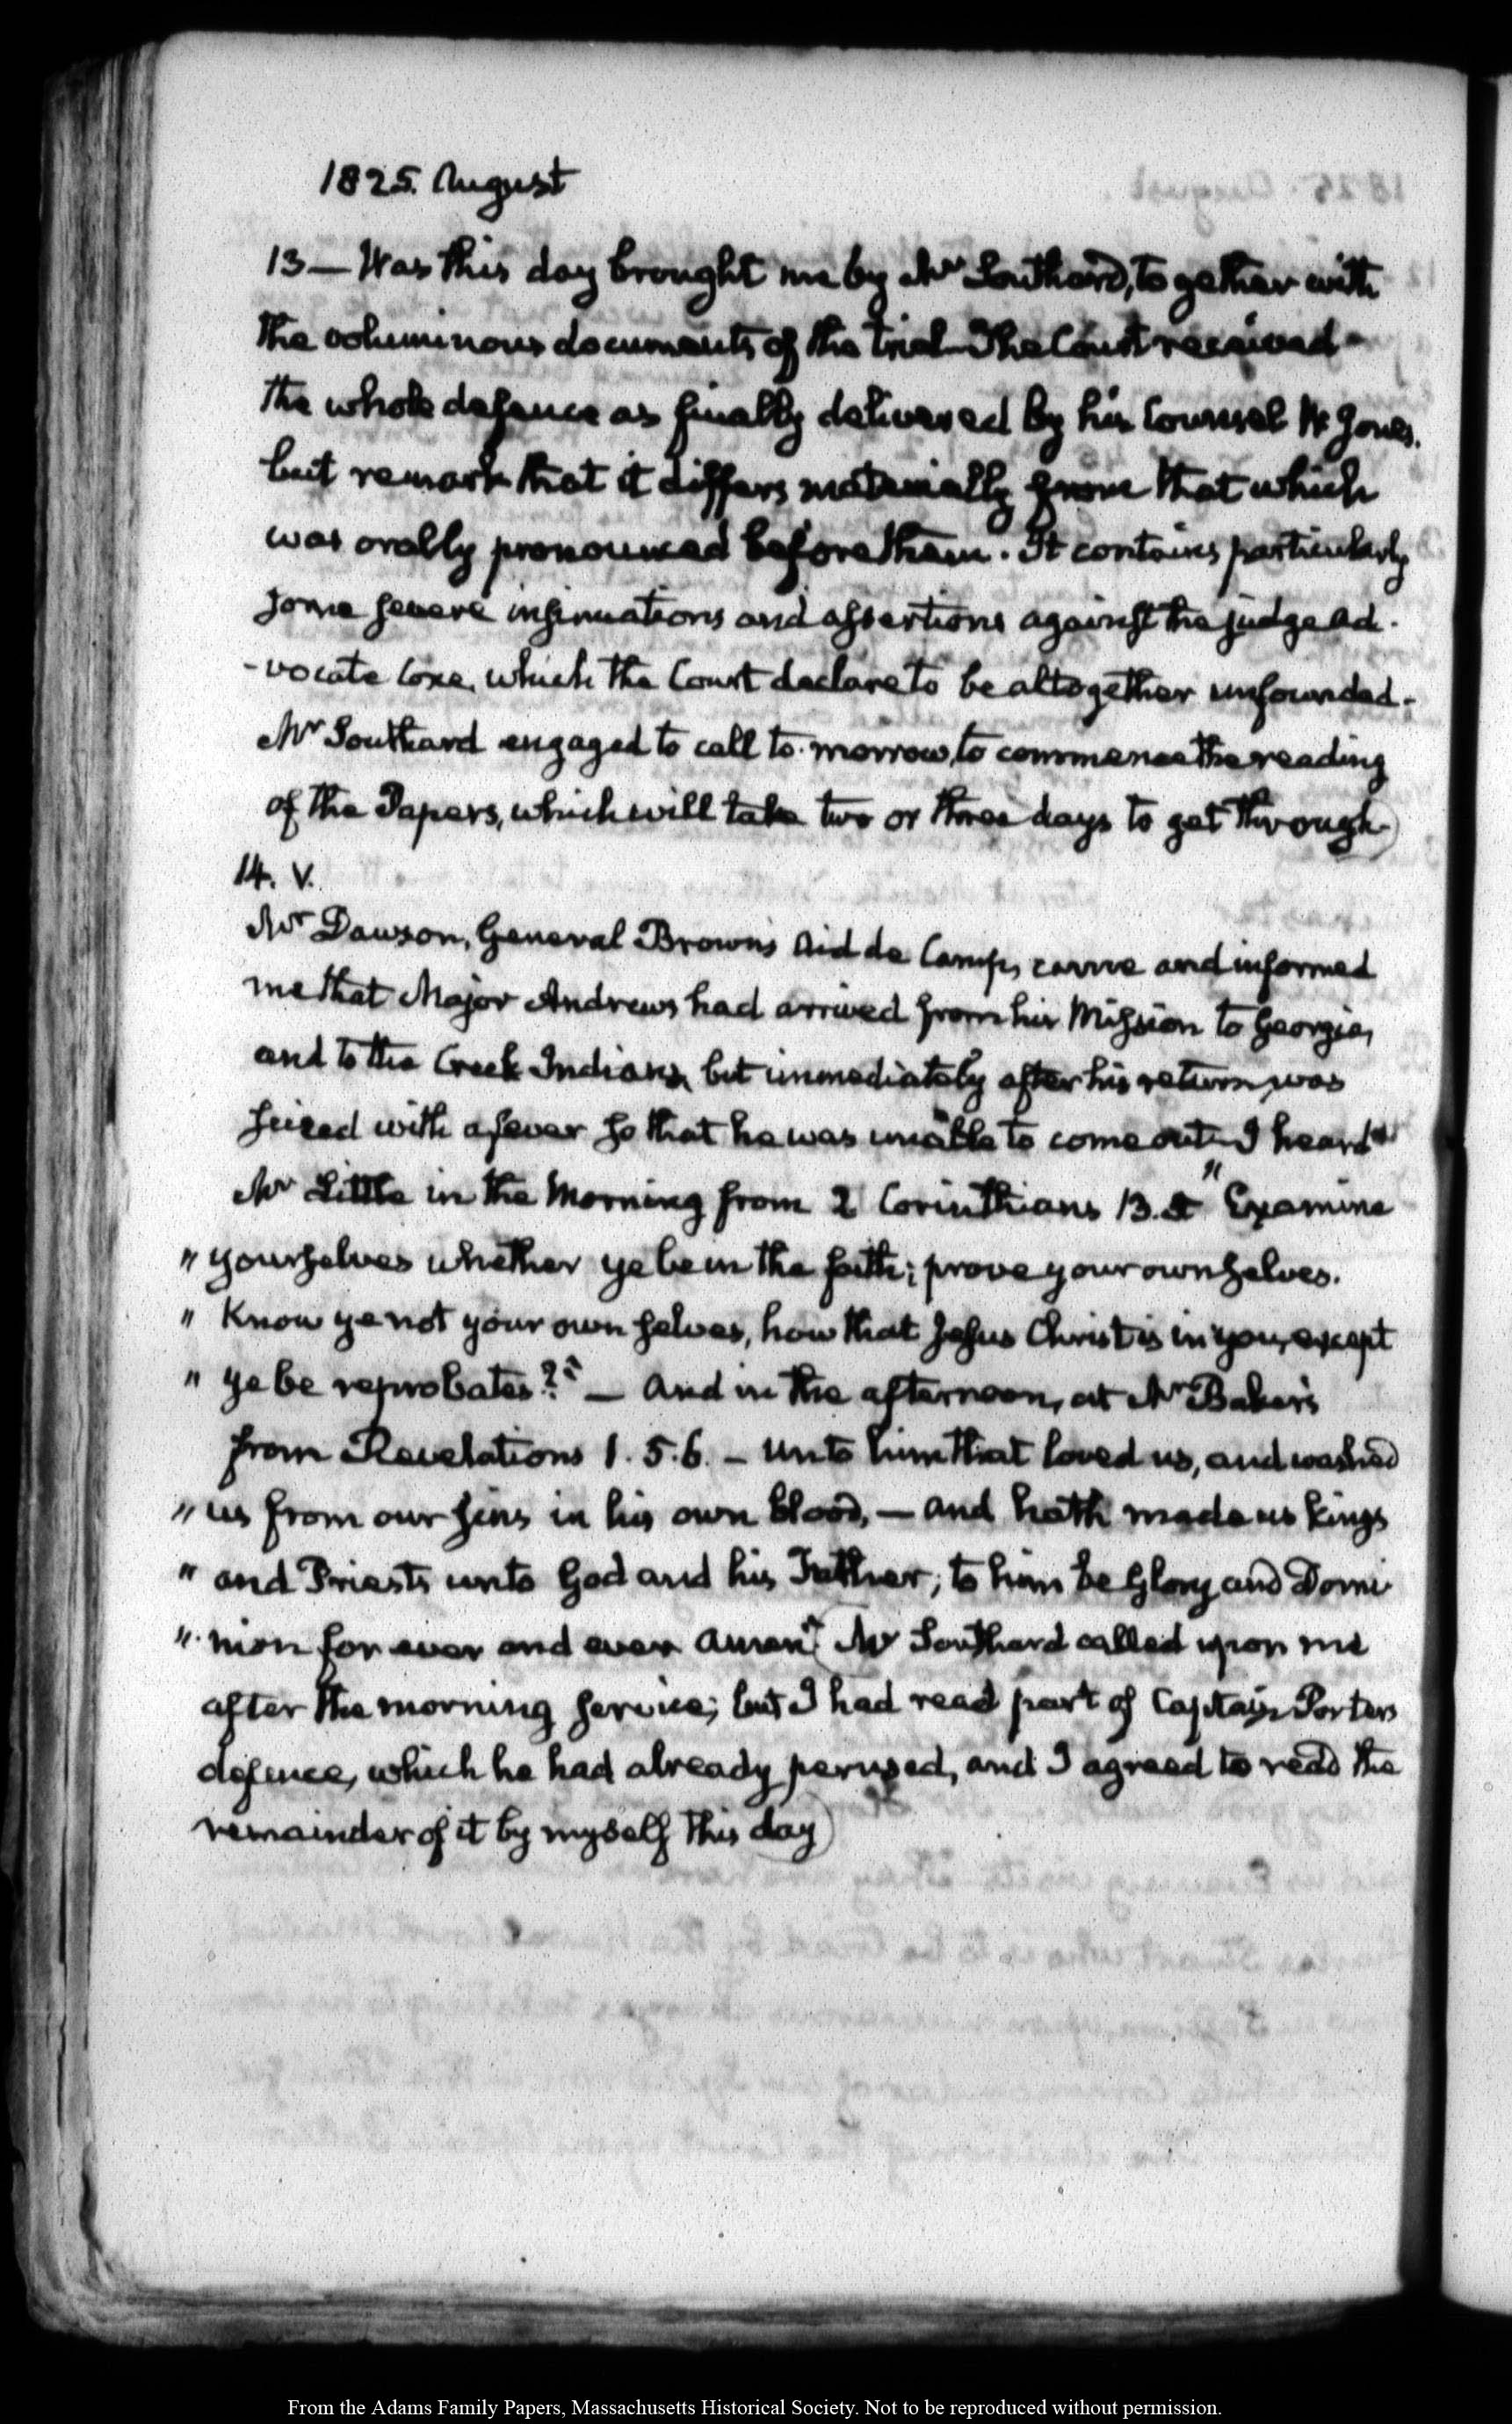 1825. August
13— Was this day brought me by Mr Southard, together with
the voluminous documents of the trial— The Court received
the whole defence as finally delivered by his Counsel W. Jones.
but remark that it differs materially from that which
was orally pronounced before them. It contains particularly
some severe insinuations and assertions against the judge ad-
-vocate Coxe, which the Court declare to be altogether unfounded.
Mr Southard engaged to call to-morrow, to commence the reading
of the Papers, which will take two or three days to get through)
14. V.
Mr Dawson, General Brown's Aid de Camp, came and informed
me that Major Andrews had arrived from his Mission to Georgia,
and to the Creek Indians, but immediately after his return, was
seized with a fever so that he was unable to come out— I heard
Mr Little in the Morning from 2 Corinthians 13.5 "Examine
" yourselves whether ye be in the faith; prove your own selves.
" Know ye not your own selves, how that Jesus Christ is in you, except
" ye be reprobates?" — And in the afternoon, at Mr Baker's
from Revelations 1. 5.6. — Unto him that loved us, and washed
" us from our sins in his own blood, — and hath made us kings
" and Priests unto God and his Father; to him be Glory and Domi
" nion for ever and ever Amen" (Mr Southard called upon me
after the morning service; but I had read part of Captain Porters
defence, which he had already perused, and I agreed to read the
remainder of it by myself this day)
From the Adams Family Papers, Massachusetts Historical Society. Not to be reproduced without permission.